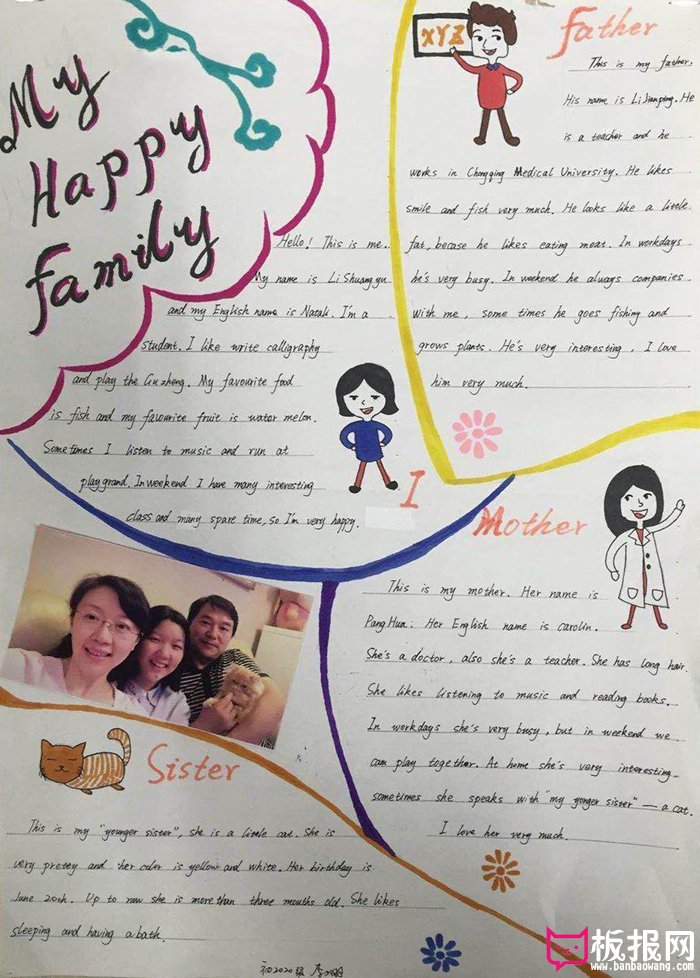 My
Happy
family
Hello! This is me.
My name is Li Shuangyu
and my English name is Natali. I'm a
student. I like write calligraphy
and play the Guzheng. My favourite food
is fish and my favourite fruit is water melon.
Sometimes I listen to music and run at
playgrand. In weekend I have many interesting
class and many spare time, so I'm very happy.
I
XYZ
Father
This is my father,
His name is Li Jianping. He
is a teacher and he
works in Chongqing Medical University. He likes
smile and fish very much. He looks like a little
fat, becase he likes eating meat. In workdays
he's very busy. In weekend he always companies
with me, some times he goes fishing and
grows plants. He's very interesting, I love
him very much.
Mother
This is my mother. Her name is
Pang Hua. Her English name is carolin.
She's a doctor, also she's a teacher. She has long hair
She likes listening to music and reading books.
In workdays she's very busy, but in weekend we
can play together. At home she's very interesting,
sometimes she speaks with "my yonger sister" — a cat.
I love her very much.
Sister
This is my "younger sister", she is a little cat. She is
very pretty and her color is yellow and white. Her birthday is
June 20th. Up to now she is more than three mouths old. She likes
sleeping and having a bath.
初2020级
板报网
www.banbaowang.com